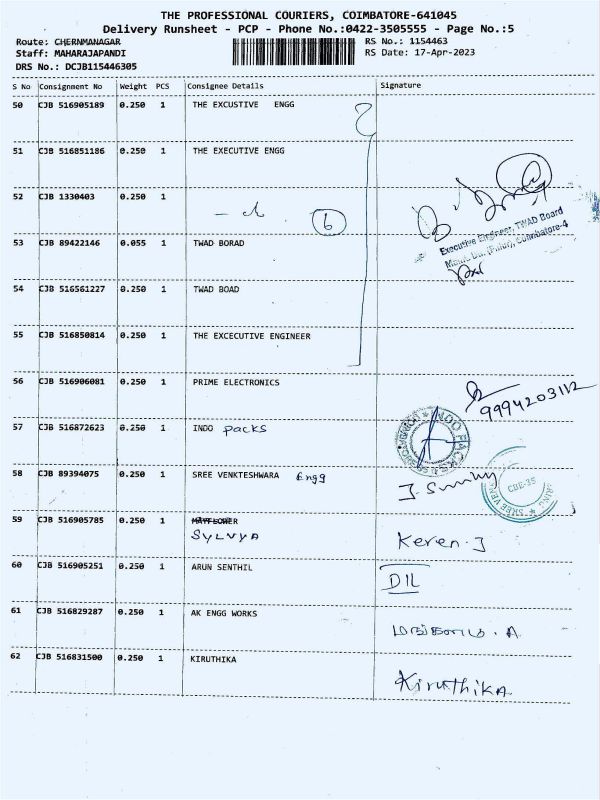 THE PROFESSIONAL COURIERS, COIMBATORE-641045
Delivery Runsheet - PCP - Phone No.:0422-3505555 - Page No.:5
Route: CHERNMANAGAR
RS No.: 1154463
Staff: MAHARAJAPANDI
RS Date: 17-Apr-2023
DRS No.: DCJB115446305
S No Consignment No Weight PCS Consignee Details Signature
50 CJB 516905189 0.250 1 THE EXCUSTIVE ENGG
51 CJB 516851186 0.250 1 THE EXECUTIVE ENGG
52 CJB 1330403 0.250 1
6
Executive Engineer, TWAD Board
Coimbatore-4
53 CJB 89422146 0.055 1 TWAD BORAD
54 CJB 516561227 0.250 1 TWAD BOAD
55 CJB 516850814 0.250 1 THE EXCECUTIVE ENGINEER
56 CJB 516906081 0.250 1 PRIME ELECTRONICS
9994203112
57 CJB 516872623 0.250 1 INDO packs
INDO PACKS
58 CJB 89394075 0.250 1 SREE VENKTESHWARA Engg
CBE-35
59 CJB 516905785 0.250 1 MAYFLOWER
SYLVYA
Keren. J
60 CJB 516905251 0.250 1 ARUN SENTHIL
DIL
61 CJB 516829287 0.250 1 AK ENGG WORKS
62 CJB 516831500 0.250 1 KIRUTHIKA
Kiruthika